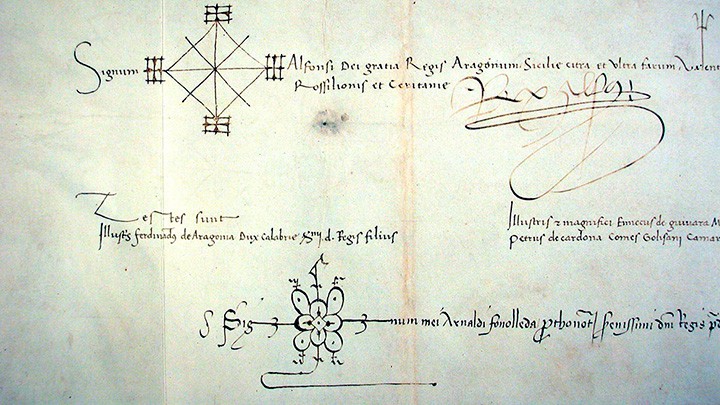 Signum Alfonsi Dei gratia Regis Aragonum Sicilie citra et ultra farum Valent
Rossilionis et Ceritanie
Rex Alfons
Testes sunt
Illustris ferdinandus de Aragonia Dux Calabrie d. Regis filius
Illustris z magnifici Enecus de guivara M
petrus de cardona Comes Golisani Camar
S Sig num mei Arnaldi fonolleda serenissimi dni Regis